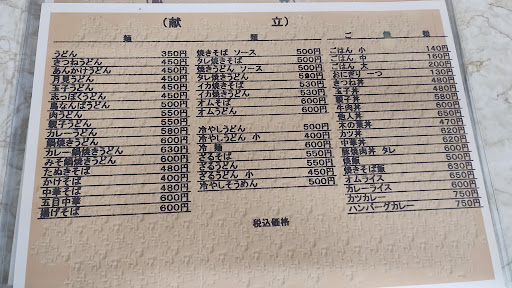 （献　立）
麺　類　ご飯類
うどん 350円
きつねうどん 450円
あんかけうどん 450円
月見うどん 450円
玉子うどん 450円
しっぽくうどん 450円
鳥なんばうどん 500円
肉うどん 550円
親子うどん 550円
カレーうどん 580円
鍋焼きうどん 600円
カレー鍋焼きうどん 630円
みそ鍋焼きうどん 600円
たぬきそば 480円
かけそば 400円
中華そば 480円
五目中華 600円
揚げそば 600円
焼きそば ソース 500円
タレ焼きそば 500円
焼きうどん ソース 500円
タレ焼きうどん
イカ焼きそば 530円
イカ焼きうどん 530円
オムそば 600円
オムうどん 600円
冷やしうどん 500円
冷やしうどん 小 400円
冷 麺 600円
ざるそば 550円
ざるうどん 550円
ざるうどん 小 450円
冷やしそうめん 500円
ごはん 小 140円
ごはん 中 160円
ごはん 大 200円
おにぎり 一つ 130円
きつね丼 480円
玉子丼 480円
親子丼 580円
牛肉丼 600円
他人丼 650円
木の葉丼 470円
カツ丼 620円
中華丼 620円
豚焼肉丼 タレ 500円
焼飯 550円
焼きそば飯 630円
オムライス 650円
カレーライス 600円
カツカレー 750円
ハンバーグカレー 750円
税込価格